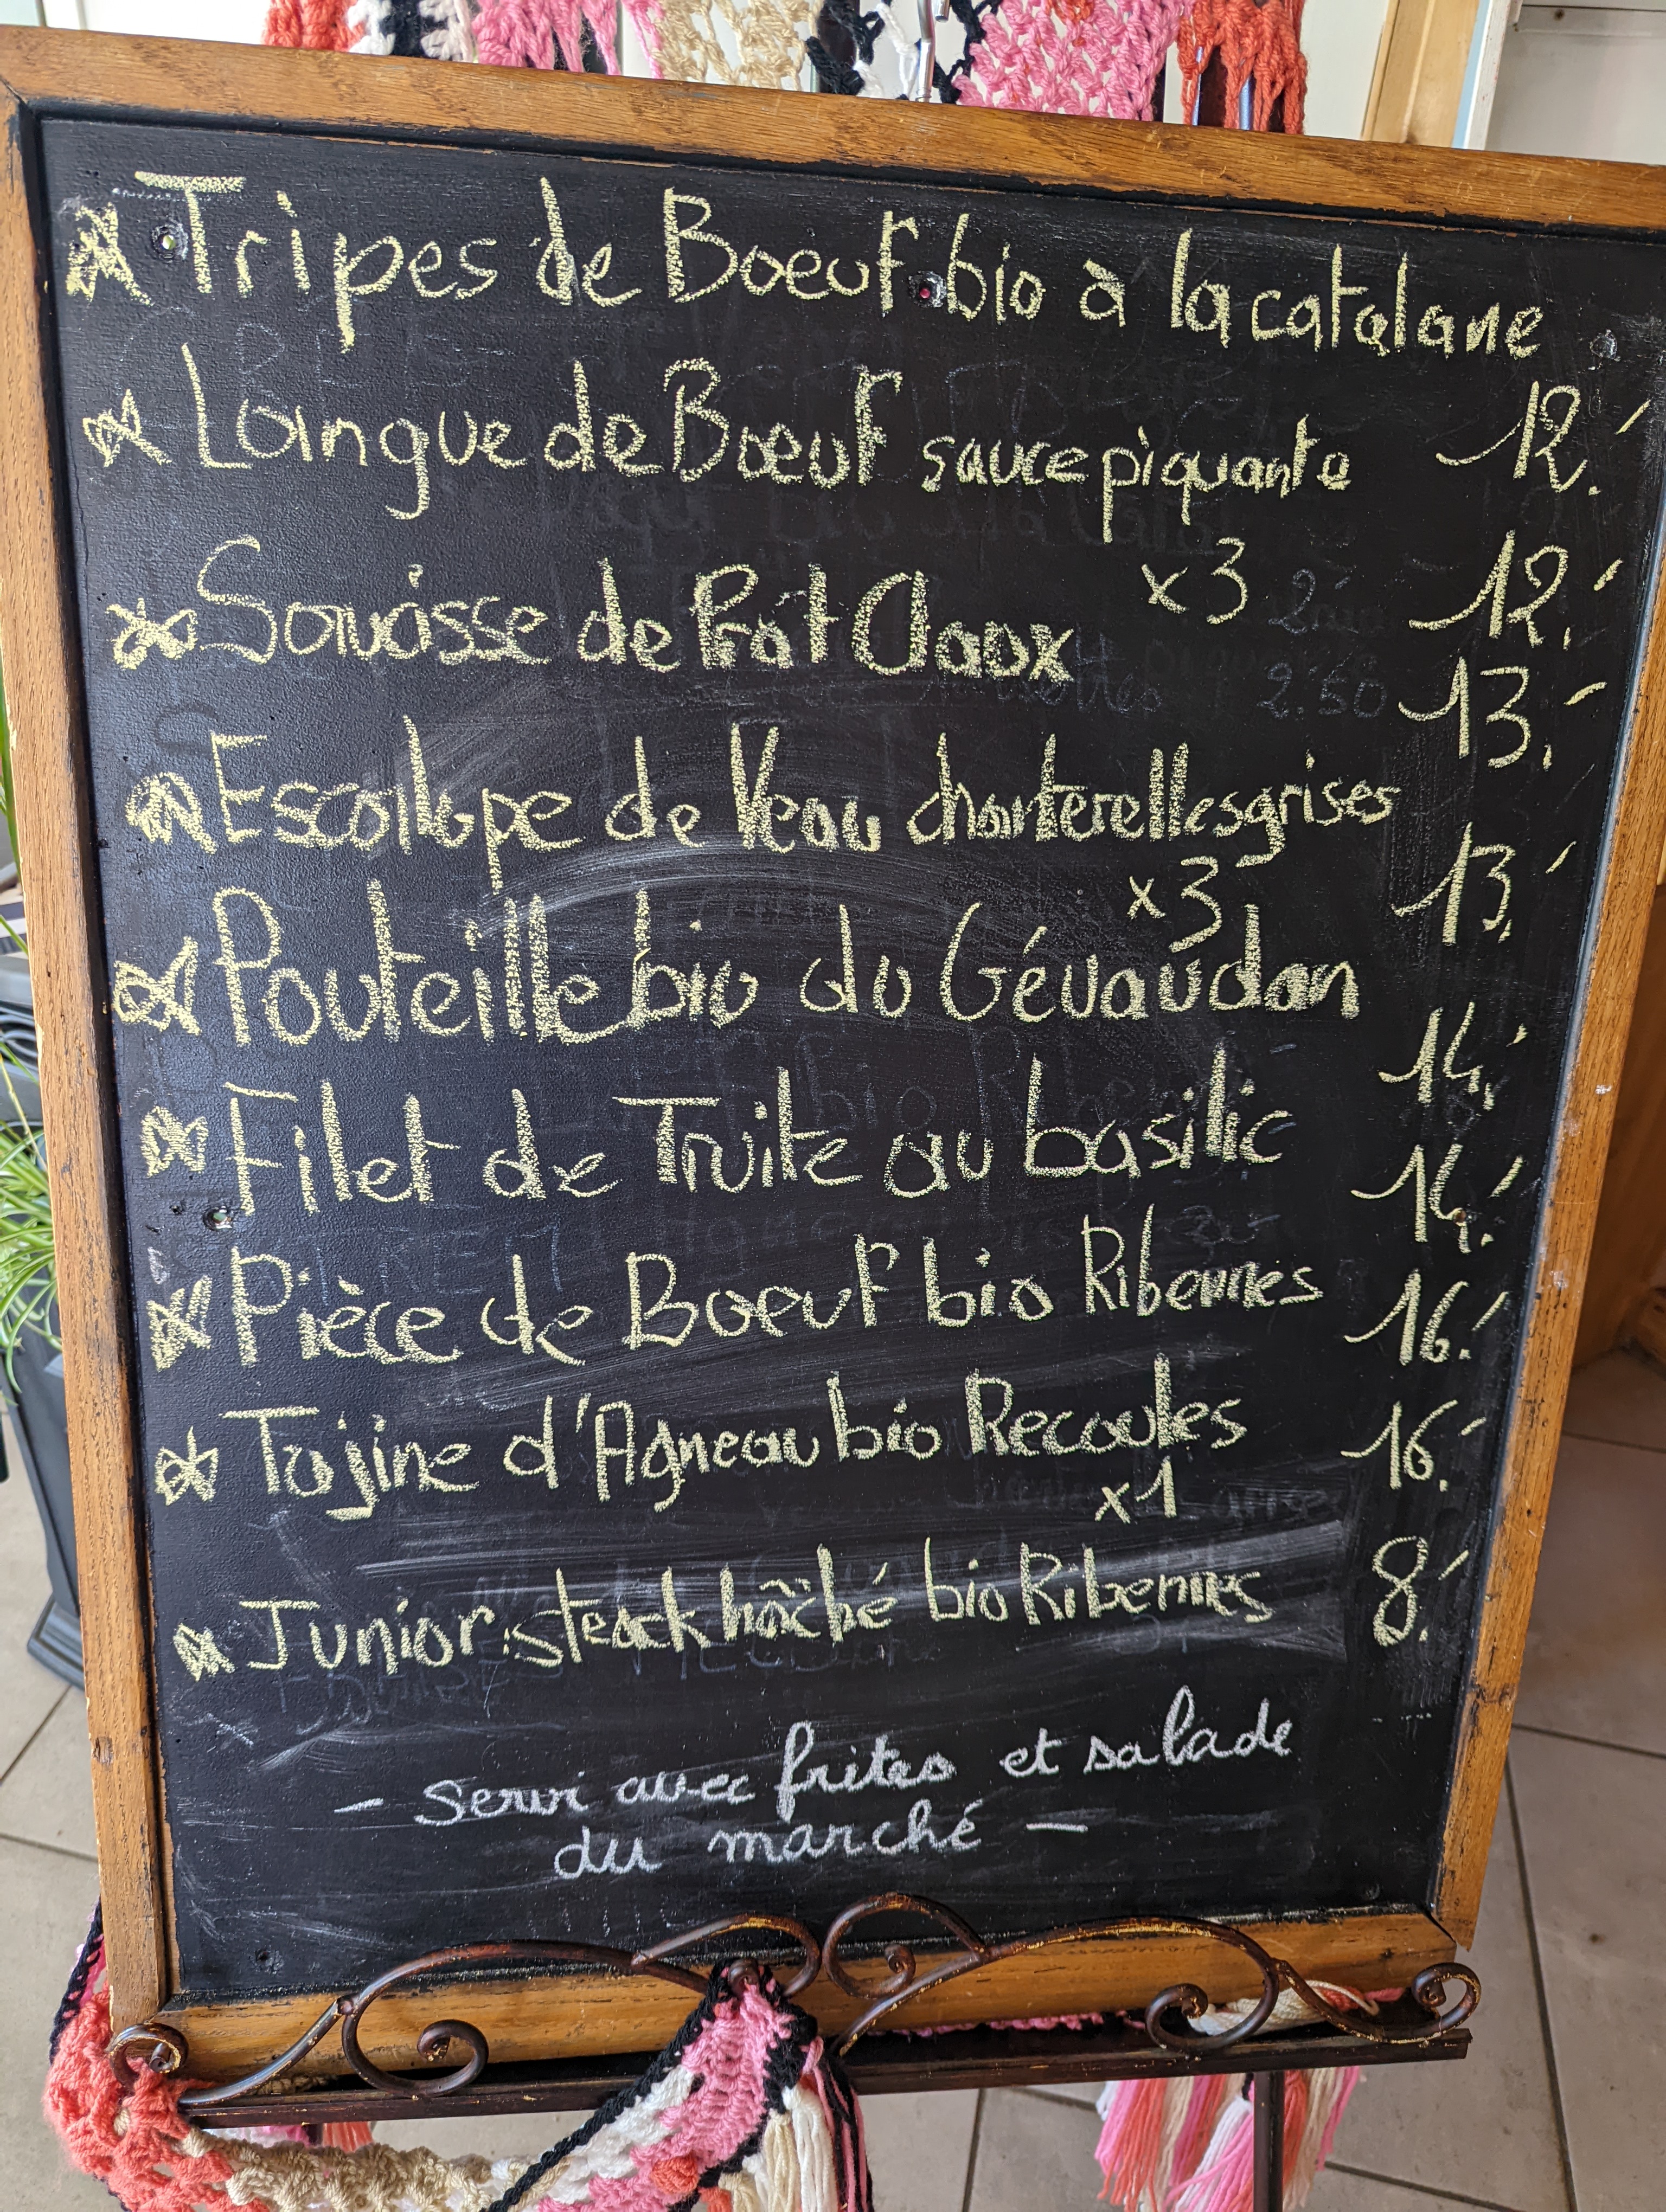 Tripes de Boeuf bio à la catalane
Langue de Boeuf sauce piquante 12.
x3 12.
Souasse de Prat Claux 13.
Escallope de Veau chanterelles grises
x3 13.
Pouteille bio du Gévaudan 14.
Filet de Truite au basilic 14.
Pièce de Boeuf bio Ribennes 16.
Tajine d'Agneau bio Recoules 16.
x1
Junior steack hâché bio Ribennes 8.
- servi avec frites et salade
du marché -